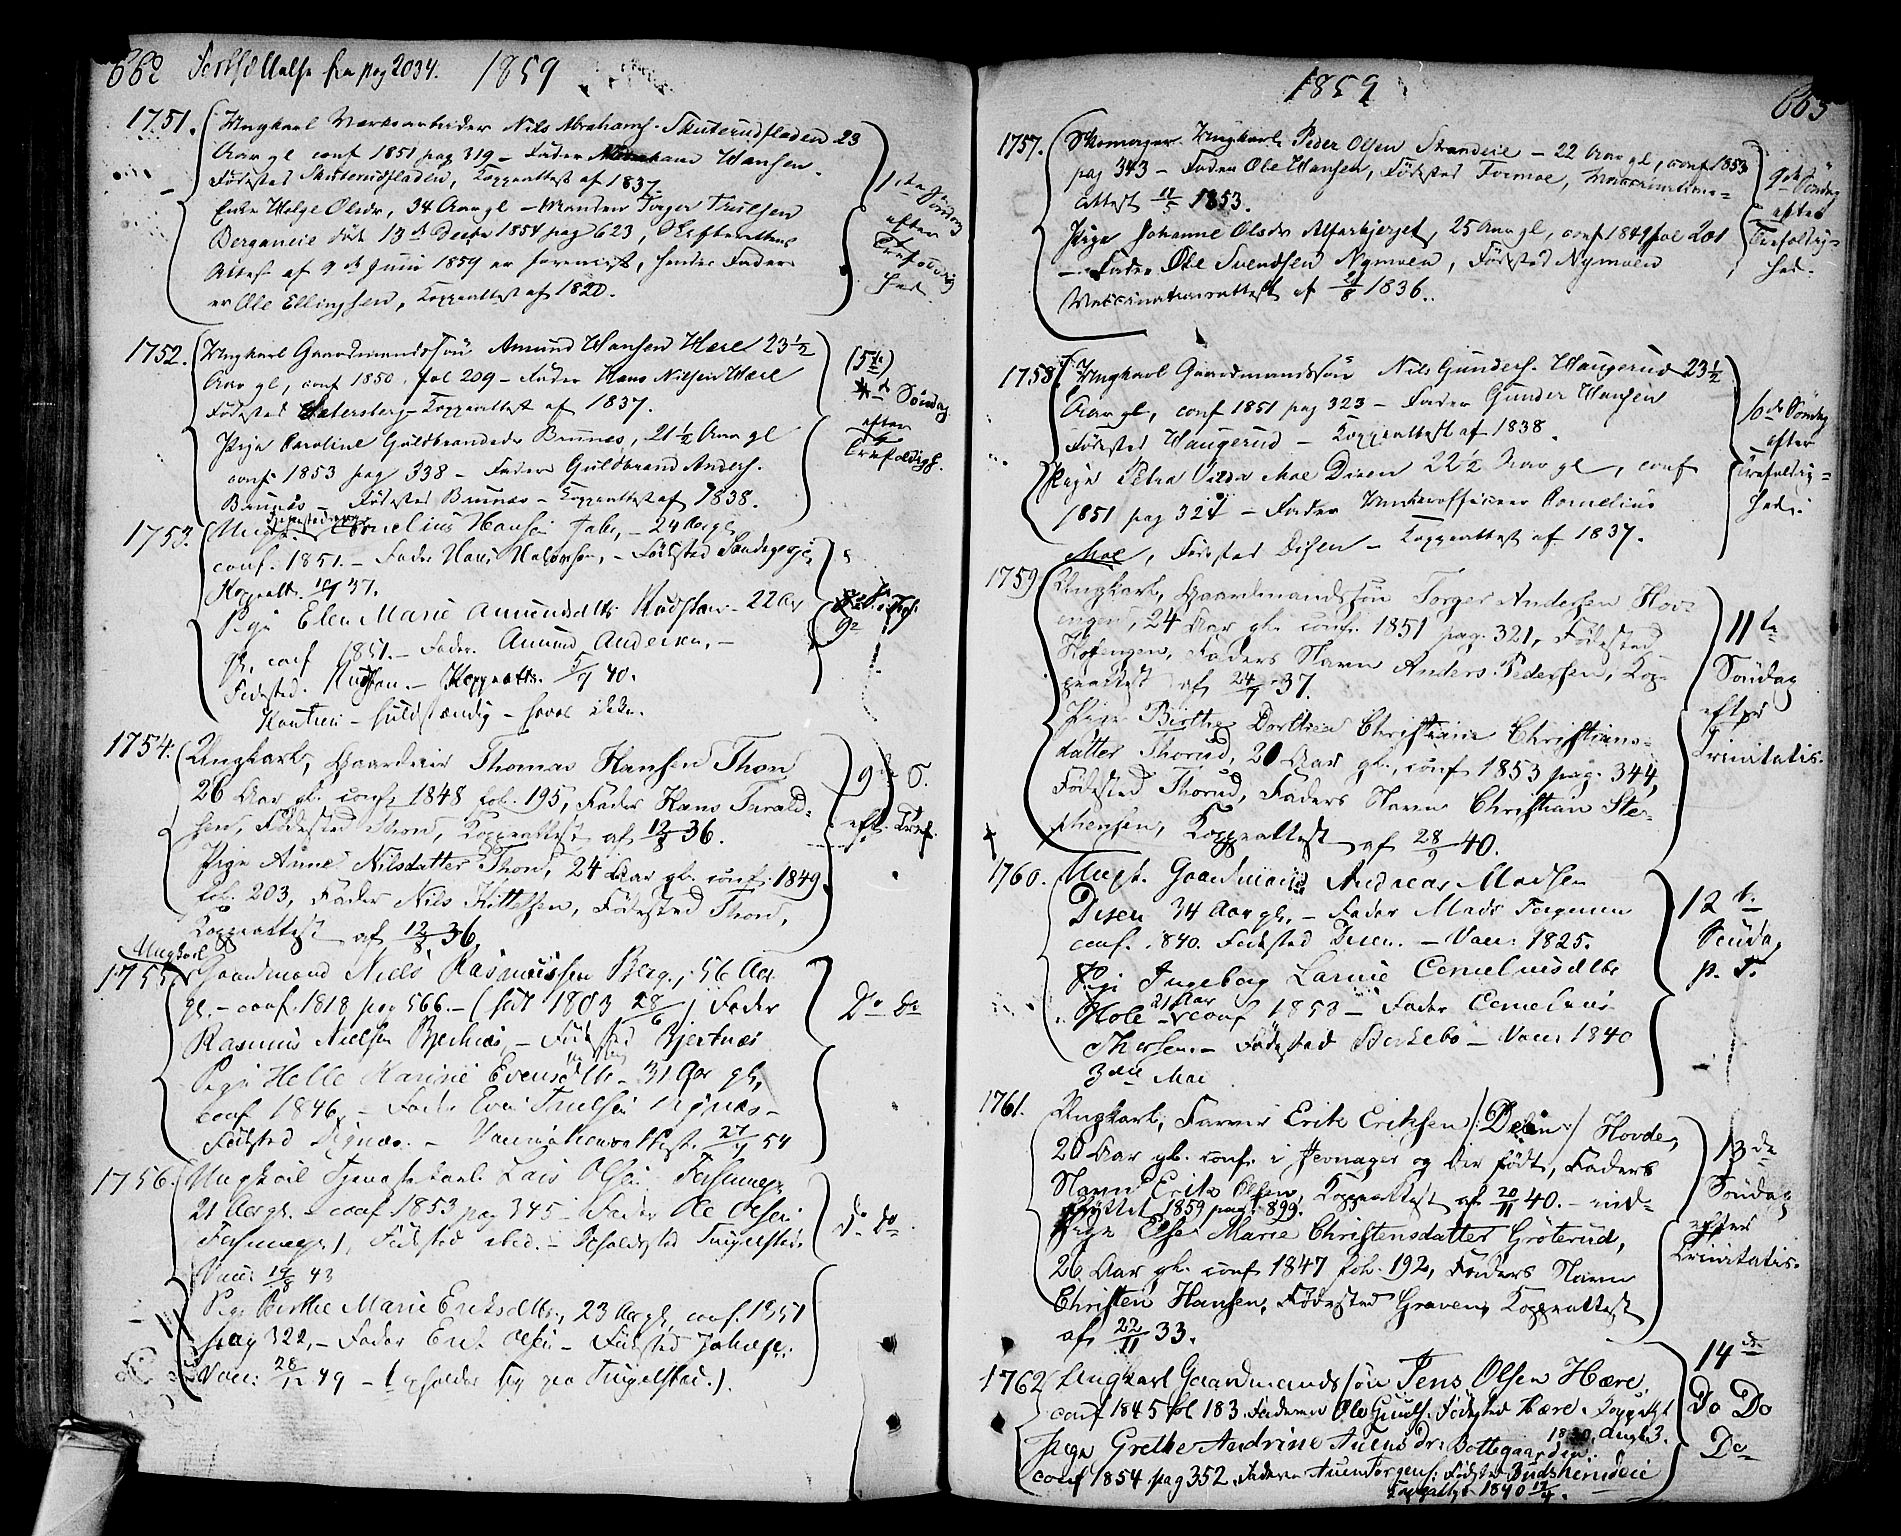 662 Fortsættelse fra pag 2034. 1859
1751. Ungkarl Værksarbeider Nils Abrahams. Skuterudfladen 23
Aar gl conf 1851 pag 319 – Fader Abraham Hansen
Fødested Skuterudfladen, Koppeattest af 1837.
Enke Helge Olsdr, 34 Aar gl – Manden Torger Truelsen
Berganeie død 13de Decbr 1854 pag 623, Skifterettens
Attest af 9de Juni 1859 er forevist, hendes Fader
er Ole Ellingsen, Koppeattest af 1820.
Søndag
efter
Trefoldig
hed.
1752. Ungkarl Gaardmandssøn Amund Hansen Hære 23 1/2
Aar gl, conf 1850 fol 209 – Fader Hans Nilsen Hære
Fødested – Koppeattest af 1837.
Pige Caroline Guldbrandsdr Brunæs, 21 1/2 Aar gl
conf 1853 pag 338 – Fader Guldbrand Anders.
Brunæs – Fødested Brunæs – Koppeattest af 1838.
(5te)
Søndag
efter
Trefoldigh.
1753. Cornelius Hansen – 24 Aar gl.
conf. 1851. – Fader Hans Halvorsen, – Fødested
Koppeatt. 37.
Pige Elen Marie Amundsdtr – 22 Aar
gl. conf 1851. – Fader Amund Andersen, –
Fødested. – Koppeatt. 40.
– fuldstændig – ikke.
1754. Ungkarl, Gaardeier Thomas Hansen Thon
26 Aar gl. conf. 1848 fol. 195, Fader Hans Trvald-
sen, Fødested Thon, Koppeattest af 12/8 36.
Pige Anne Nilsdatter Thon, 24 Aar gl. conf. 1849
fol. 203, Fader Nils Kittelsen, Fødested Thon,
Koppeattest af 12/8 36,
9de S.
eft. Tref.
Ungkarl
1755. Gaardmand Niels Rasmussen Berg, 56 Aar
gl. – conf. 1818 pag 566. – (født 1803 28/6) Fader
Rasmus Nielsen Bjertnæs, – Fødested Bjertnæs
Pige Helle Karine Evensdtr – 31 Aar gl,
Conf 1846, – Fader Even Truelsen Dignæs –
Fødested Dignæs. – Vaccinationsattest. 27/4 54
Do Do
1756. Ungkarl Tjenestekarl Lars Olsen
21 Aar gl. – conf 1853 pag 345 – Fader Ole Olsen
Fødested ibid. – Opholdssted Tingelstad.
Vacc: 19/8 43
Pige Berthe Marie Eriksdtr, 23 Aar gl, conf. 1851
pag 322, – Fader Erik Olsen – Fødested
Vacc: 28/12 49 – (opholder sig paa Tingelstad.)
do do
1859 663
1757. Skomager Ungkarl Peder Olsen Strandeie – 22 Aar gl, conf 1853
pag 343 – Fader Ole Hansen, Fødested Formoe, Vaccinations-
Attest 11/5 1853.
Pige Johanne Olsdr Alfarbjerget, 25 Aar gl, conf 1849 fol 201
– Fader Ole Svendsen Nymoen, Fødested Nymoen
Vaccinationsattest af 24/8 1836.
9de Søndag
efter
Trefoldig-
hed.
1758. Ungkarl Gaardmandssøn Nils Gunders. Haugerud 23 1/2
Aar gl, conf 1851 pag 323 – Fader Gunder Hansen
Fødested Haugerud – Koppeattest af 1838.
Pige Petra Moe Disen 22 1/2 Aar gl, conf
1851 pag 324 – Fader Underofficeer Cornelius
Moe, Fødested Disen – Koppeattest af 1837.
10de Søndag
efter
Trefoldig-
hed.
1759. Ungkarl, Gaardmandssøn Torger Andersen Hov-
engen, 24 Aar gl. conf. 1851 pag. 321, Fødested
Hofengen, Faders Navn Anders Pedersen, Kop-
peattest af 24/9 37.
Pige Birthe Dorthea Christiane Christians-
datter Thorud, 20 Aar gl., conf 1853 pag. 344,
Fødested Thorud, Faders Navn Christian Ste-
phensen, Koppeattest af 28/9 40.
11te
Søndag
efter
Trinitatis.
1760. Ungk. Gaardmand Andreas Madsen
Disen 34 Aar gl. – Fader Mads Torgersen
conf. 1840. Fødested Disen. – Vacc: 1825.
Pige Ingeborg Larine Corneliusdtr
Hole – 21 Aar conf 1853 – Fader Cornelius
Thorsen. – Fødested – Vacc: 1840
3die Mai
12te
Søndag
p. T.
1761. Ungkarl, Farver Erik Eriksen /: Delin :/ Hovde,
20 Aar gl. conf. i Jevnager og der født, Faders
Navn Erik Olsen, Koppeattest af 20/11 40. – ind-
flyttet 1859 pag. 899.
Pige Else Marie Christensdatter Grøterud,
26 Aar gl. conf 1847 fol. 192, Faders Navn
Christen Hansen, Fødested Graven, Koppeattest
af 22/11 33.
13de
Søndag
efter
Trinitatis.
1762 Ungkarl Gaardmandssøn Jens Olsen Hære,
conf 1845 fol 183. Faderen Ole Fødested Hære.
1830. Augst 3.
Pige Grethe Andrine Auensdr: Bottegaarden.
conf 1854 pag 352. Faderen Auen Torgens: Fødested
1840 19/4.
14de
Do Do
Do